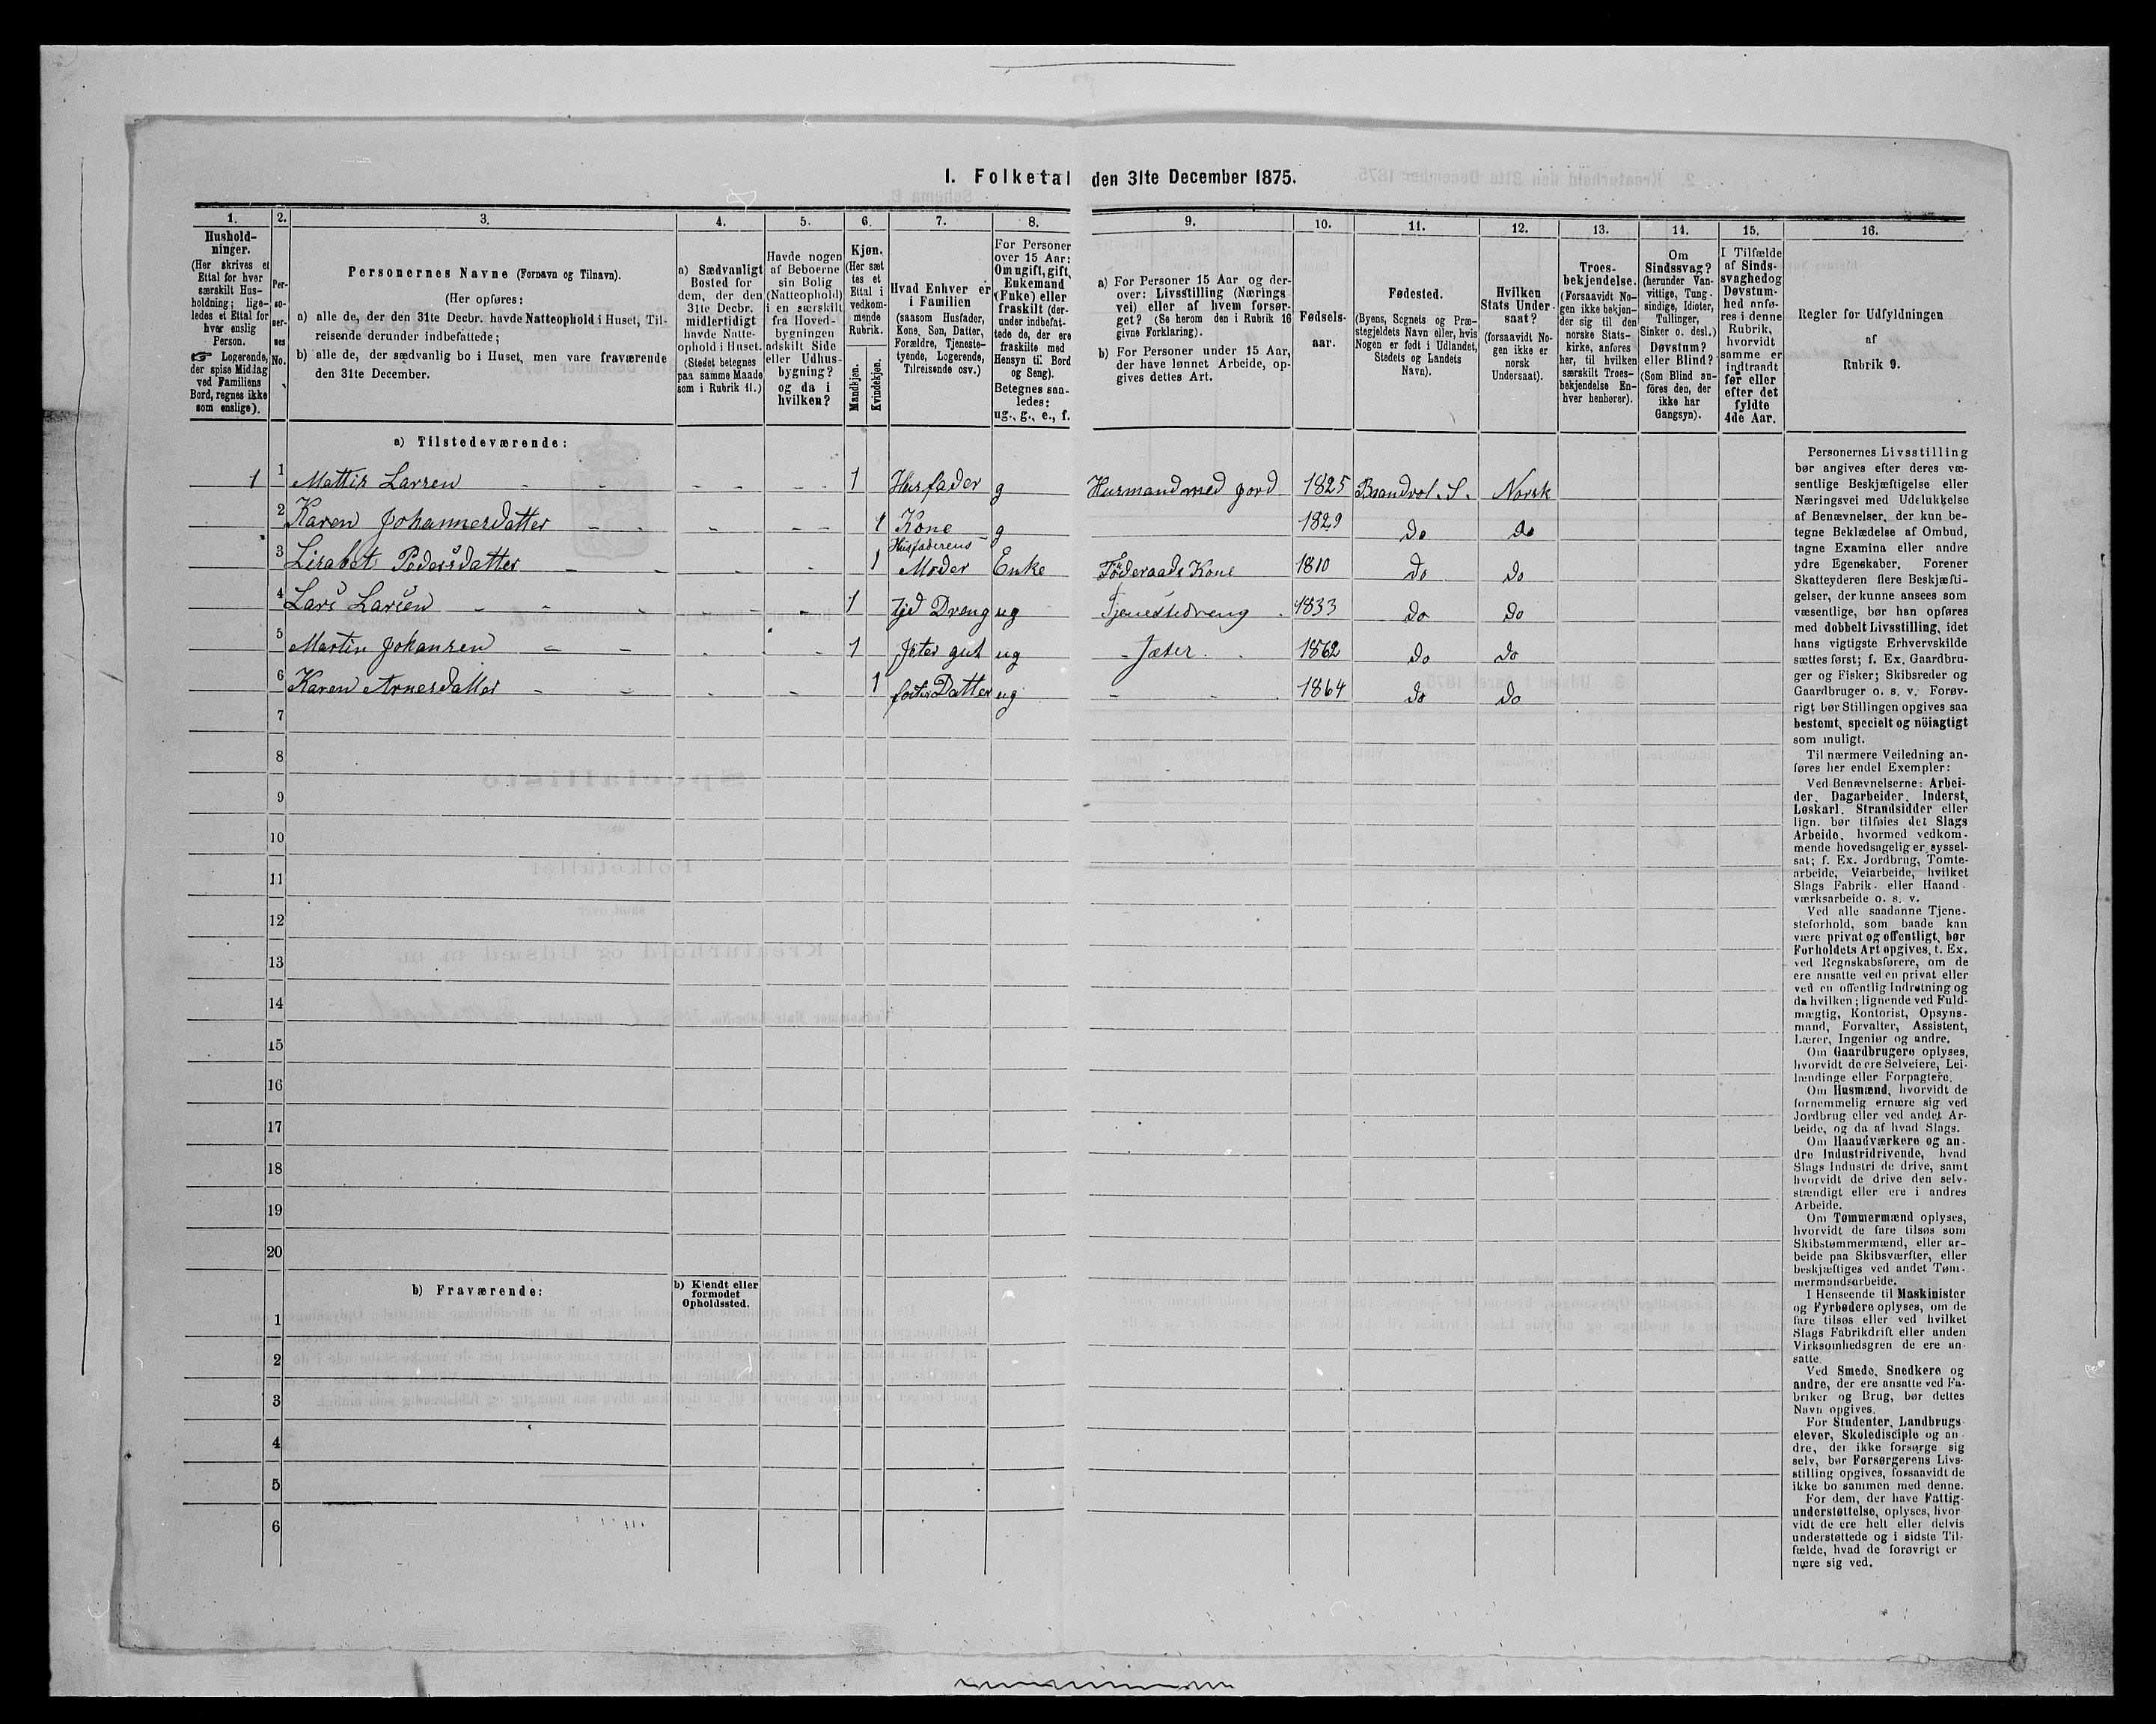 1. Folketal den 31te December 1875.
1. 2. 3. 4. 5. 6. 7. 8. 9. 10. 11. 12. 13. 14. 15. 16.
Hushold-
ninger.
(Her skrives et
Ettal for hver
særskilt Hus-
holdning; lige-
ledes et Ettal for
hver enslig
Person.
☞ Logerende,
der spise Middag
ved Familiens
Bord, regnes ikke
som enslige).
Per-
so-
ner-
nes
No.
Personernes Navne (Fornavn og Tilnavn).
(Her opføres:
a) alle de, der den 31te Decbr. havde Natteophold i Huset, Til-
reisende derunder indbefattede;
b) alle de, der sædvanlig bo i Huset, men vare fraværende
den 31te December.
a) Sædvanligt
Bosted for
dem, der den
31te Decbr.
midlertidigt
havde Natte-
ophold i Huset.
(Stedet betegnes
paa samme Maade
som i Rubrik 11.)
Havde nogen
af Beboerne
sin Bolig
(Natteophold)
i en særskilt
fra Hoved-
bygningen
adskilt Side
eller Udhus-
bygning?
og da i
hvilken?
Kjøn.
(Her sæt
tes et
Ettal i
vedkom-
mende
Rubrik.
Mandkjøn.
Kvindekjøn.
Hvad Enhver er
i Familien
(saasom Husfader,
Kone, Søn, Datter,
Forældre, Tjeneste-
tyende, Logerende,
Tilreisende osv.)
For Personer
over 15 Aar:
Om ugift, gift,
Enkemand
(Enke) eller
fraskilt (der-
under indbefat-
tede de, der ere
fraskilte med
Hensyn til Bord
og Seng).
Betegnes saa-
ledes:
ug., g., e., f.
a) For Personer 15 Aar og der-
over: Livsstilling (Nærings
vei) eller af hvem forsør-
get? (Se herom den i Rubrik 16
givne Forklaring).
b) For Personer under 15 Aar,
der have lønnet Arbeide, op-
gives dettes Art.
Fødsels-
aar.
Fødested.
(Byens, Sognets og Præ-
stegjeldets Navn eller, hvis
Nogen er født i Udlandet,
Stedets og Landets
Navn).
Hvilken
Stats Under-
saat?
(forsaavidt No-
gen ikke er
norsk
Undersaat).
Troes-
bekjendelse.
(Forsaavidt No-
gen ikke bekjen-
der sig til den
norske Stats-
kirke, anføres
her, til hvilken
særskilt Troes-
bekjendelse En-
hver henhører).
Om
Sindssvag?
(herunder Van-
vittige, Tung-
sindige, Idioter,
Tullinger,
Sinker o. desl.)
Døvstum?
eller Blind?
(Som Blind an-
føres den, der
ikke har
Gangsyn).
I Tilfælde
af Sinds-
svaghed og
Døvstum-
hed anfø-
res i denne
Rubrik,
hvorvidt
samme er
indtraadt
før eller
efter det
fyldte
4de Aar.
Regler for Udfyldningen
af
Rubrik 9.
a) Tilstedeværende:
1 1 Mattis Larsen 1 Husfader g Husmand med jord 1825 Brandvol. S. Norsk
2 Karen Johannesdatter 1 Kone g 1829 do do
3 Lisabet Pedersdatter 1 Husfaderens Moder Enke Föderaads Kone 1810 do do
4 Lars Larsen 1 tje Dreng ug Tjenestedreng 1833 do do
5 Martin Johansen 1 Jeter gut ug Jæter 1862 do do
6 Karen Arnesdatter 1 foster Datter ug 1864 do do
7
8
9
10
11
12
13
14
15
16
17
18
19
20
b) Fraværende:
b) Kjendt eller
formodet
Opholdssted.
1
2
3
4
5
6
Personernes Livsstilling
bør angives efter deres væ-
sentlige Beskjæftigelse eller
Næringsvei med Udelukkelse
af Benævnelser, der kun be-
tegne Beklædelse af Ombud,
tagne Examina eller andre
ydre Egenskaber. Forener
Skatteyderen flere Beskjæfti-
gelser, der kunne ansees som
væsentlige, bør han opføres
med dobbelt Livsstilling, idet
hans vigtigste Erhvervskilde
sættes først; f. Ex. Gaardbru-
ger og Fisker; Skibsreder og
Gaardbruger o. s. v. Forøv-
rigt bør Stillingen opgives saa
bestemt, specielt og nöiagtigt
som muligt.
Til nærmere Veiledning an-
føres her endel Exempler:
Ved Benævnelserne: Arbei-
der, Dagarbeider, Inderst,
Løskarl, Strandsidder eller
lign. bør tilføies det Slags
Arbeide, hvormed vedkom-
mende hovedsagelig er syssel-
sat; f. Ex. Jordbrug, Tomte-
arbeide, Veiarbeide, hvilket
Slags Fabrik- eller Haand-
værksarbeide o. s. v.
Ved alle saadanne Tjene-
steforhold, som baade kan
være privat og offentligt, bør
Forholdets Art opgives, t. Ex.
ved Regnskabsførere, om de
ere ansatte ved en privat eller
ved en offentlig Indretning og
da hvilken; lignende ved Fuld-
mægtig, Kontorist, Opsyns-
mand, Forvalter, Assistent,
Lærer, Ingeniør og andre.
Om Gaardbrugere oplyses,
hvorvidt de ere Selveiere, Lei-
lændinge eller Forpagtere.
Om Husmænd, hvorvidt de
fornemmelig ernære sig ved
Jordbrug eller ved andet Ar-
beide, og da af hvad Slags.
Om Haandværkere og an-
dre Industridrivende, hvad
Slags Industri de drive, samt
hvorvidt de drive den selv-
stændigt eller ere i andres
Arbeide.
Om Tømmermænd oplyses,
hvorvidt de fare tilsøs som
Skibstømmermænd, eller ar-
beide paa Skibsværfter, eller
beskjæftiges ved andet Tøm-
mermandsarbeide.
I Henseende til Maskinister
og Fyrbødere oplyses, om de
fare tilsøs eller ved hvilket
Slags Fabrikdrift eller anden
Virksomhedsgren de ere an-
satte.
Ved Smede, Snedkere og
andre, der ere ansatte ved Fa-
briker og Brug, bør dettes
Navn opgives.
For Studenter, Landbrugs-
elever, Skoledisciple og an-
dre, der ikke forsørge sig
selv, bør Forsørgerens Livs-
stilling opgives, forsaavidt de
ikke bo sammen med denne.
For dem, der have Fattig-
understøttelse, oplyses, hvor-
vidt de ere helt eller delvis
understøttede og i sidste Til-
fælde, hvad de forøvrigt er-
nære sig ved.